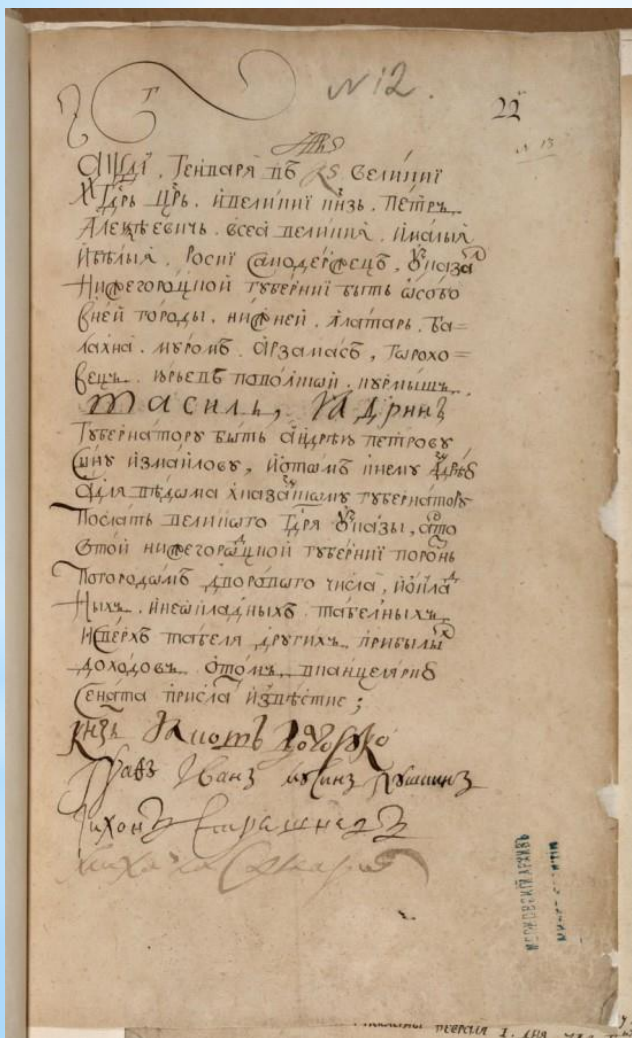 N 12.
22
N 13
҂аѱді, Генваря въ 26 великиї
Гдрь Црь. и великиї кнзь. Петръ
Алеѯѣевичь. всеа великия. и малыя
и бѣлыя. Росиї Самодержецъ, ѹказа
Нижегороцкой губерниї быть ѡсобо
в ней городы. нижней. Алатарь. Ба=
лахна. муромъ. Арзамасъ, горохо=
вецъ. юрьевъ поволской. курмышъ
Василь, Ядринъ
Губернатору быть андрею петрову
Сыну измайлову, и ѡ томъ к нему
а для вѣдома к губернатору
Послать великого Гдря ѹказы, а
с той нижегороцкой губерниї
по городамъ дворового числа, и ѡкла
ныхъ. и неѡкладныхъ. табелныхъ
и сверхъ табеля других. прибылы
доходовъ. ѡ томъ, в канцелярию
Сената присла извѣстие;
Князь Яковъ Долгоруко
Графъ Иванъ Мусинъ Пушкинъ
Тихонъ Стрешневъ
Михайла Самарин
МОСКОВСКІЙ АРХИВЪ